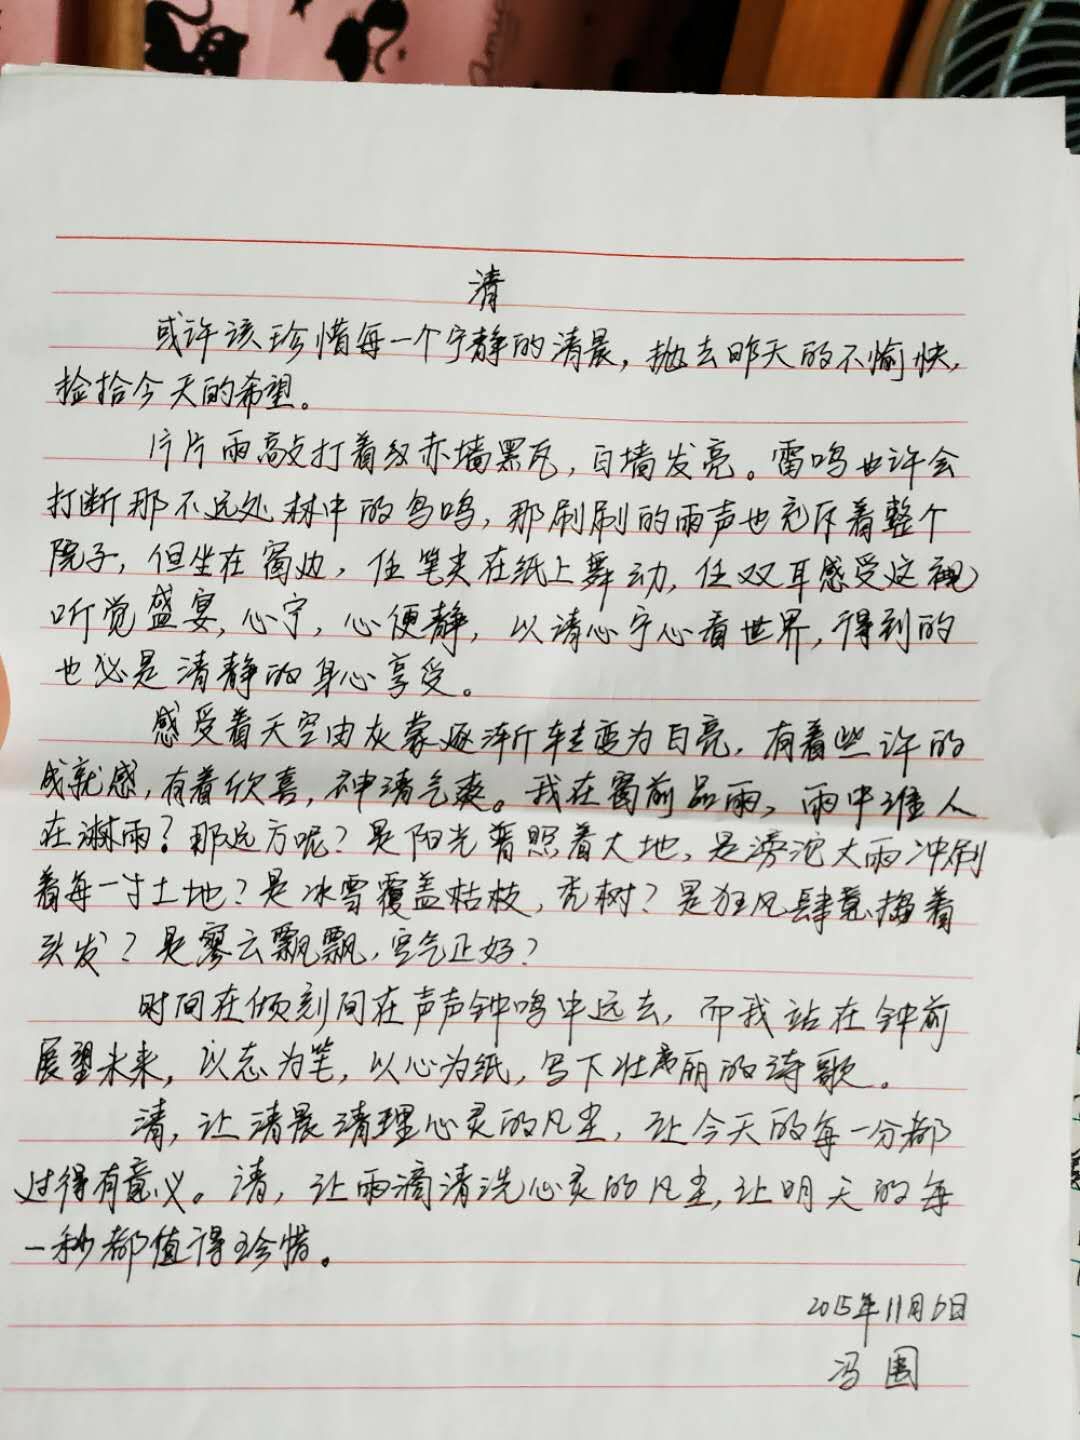 清
或许该珍惜每一个宁静的清晨，抛去昨天的不愉快，
捡拾今天的希望。
片片雨高支打着红赤墙黑瓦，白墙发亮。雷鸣也许会
打断那不远处林中的鸟鸣，那刷刷的雨声也充斥着整个
院子，但坐在窗边，任笔尖在纸上舞动，任双耳感受这视
听觉盛宴，心宁，心便静，以清心宁心看世界，得到的
也必是清静的身心享受。
感受着天空由灰蒙逐渐转变为白亮，有着些许的
成就感，有着欣喜，神清气爽。我在窗前品雨，雨中谁人
在淋雨？那远方呢？是阳光普照着大地，是滂沱大雨冲刷
着每一寸土地？是冰雪覆盖枯枝，秃树？是狂风肆意捣着
头发？是寥云飘飘，空气正好？
时间在倾刻间在声声钟鸣中远去，而我站在钟前
展望未来，以志为笔，以心为纸，写下壮丽的诗歌。
清，让清晨清理心灵的凡尘，让今天的每一分都
过得有意义。清，让雨滴清洗心灵的凡尘，让明天的每
一秒都值得珍惜。
2015年11月6日
冯围
Amy